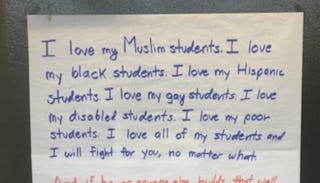 I love my Muslim students. I love
my black students. I love my Hispanic
students. I love my gay students. I love
my disabled students. I love my poor
students. I love all of my students and
I will fight for you, no matter what.
And if he or anyone else builds that wall